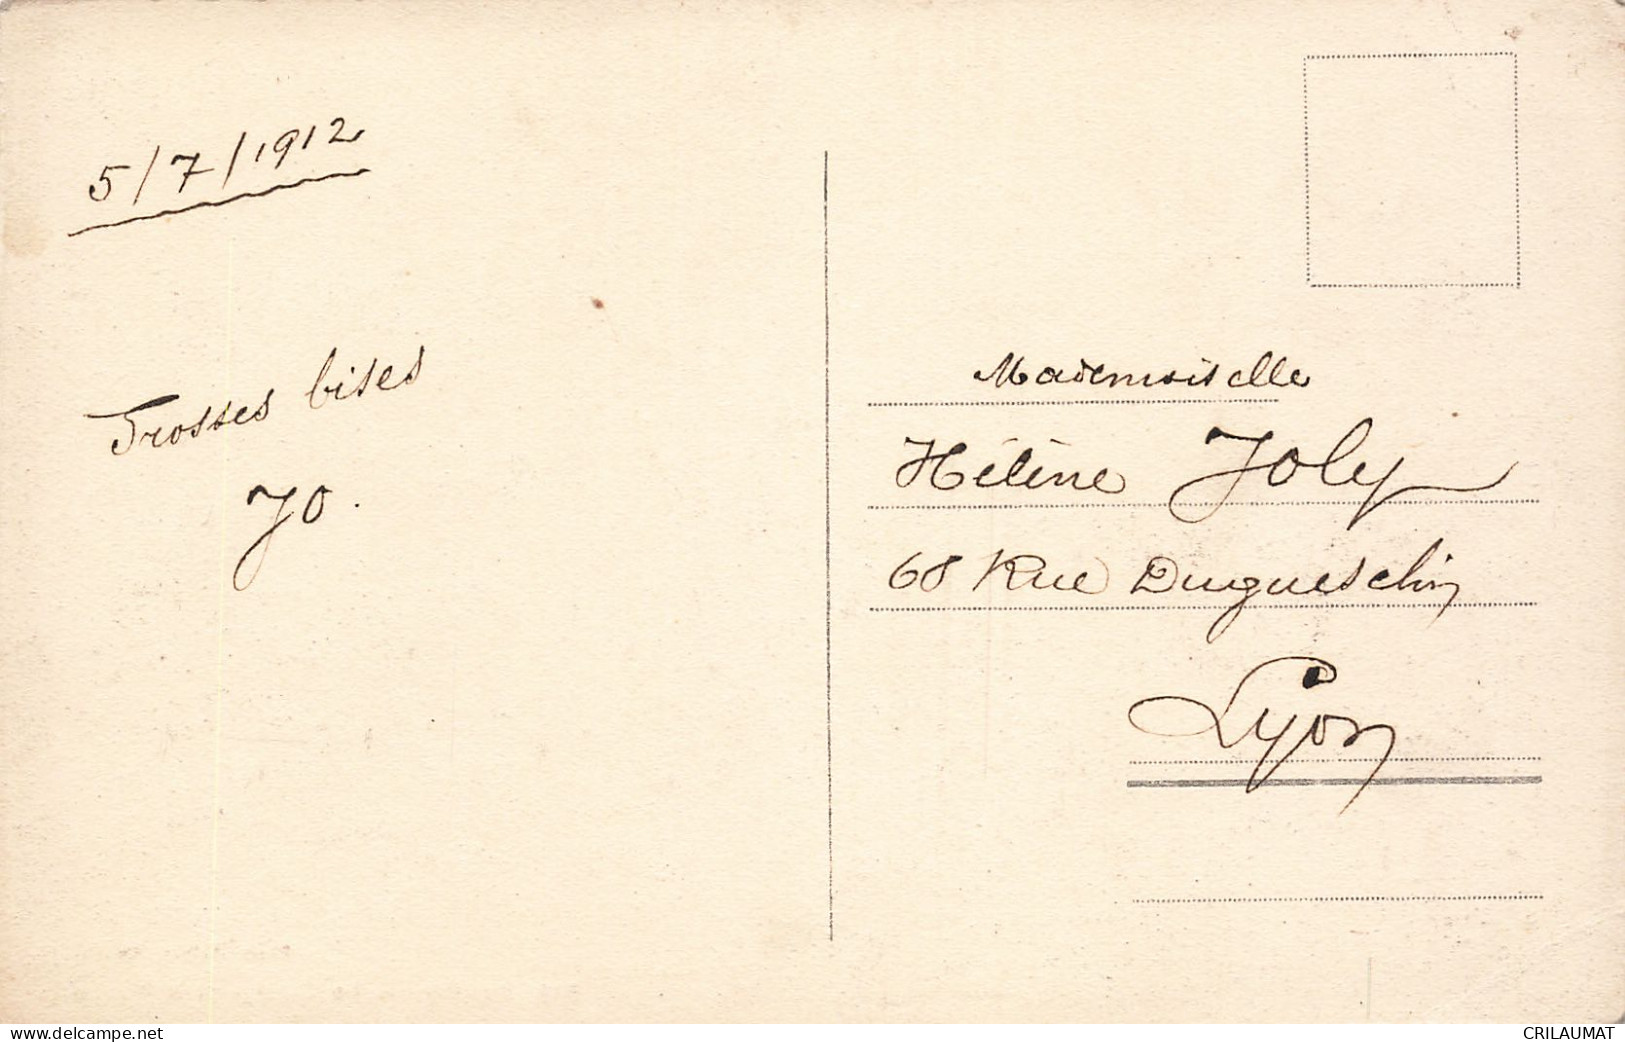 5/7/1912
Grosses bises
Jo.
Mademoiselle
Hélène Joly
68 Rue Dugueslin
Lyon
www.delcampe.net
CRILAUMAT